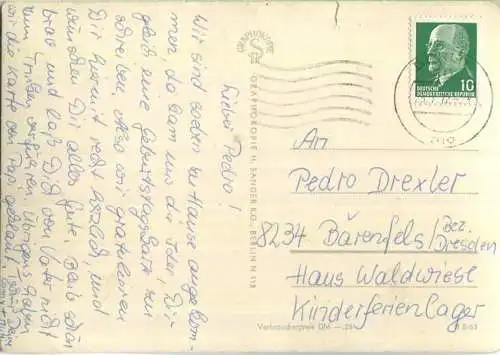 Lieber Pedro!
Wir sind soeben zu Hause angekom-
men, da kam uns die Idee, Dir
gleich eine Geburtstagskarte zu
schreiben. Also wir gratulieren
Dir hiermit recht herzlich und
wünschen Dir alles Gute. Bleib schön
brav und laß Dich von Vater nicht
zum Trinken verführen. Übrigens haben
wir die Karte der Post geklaut.
GRAPHOKOPIE
GRAPHOKOPIE H. SANDER KG., BERLIN N 113
DEUTSCHE
DEMOKRATISCHE REPUBLIK
10
An
Pedro Drexler
8234 Bärenfels/Bez. Dresden
Haus Waldwiese
Kinderferienlager
Verbraucherpreis DM